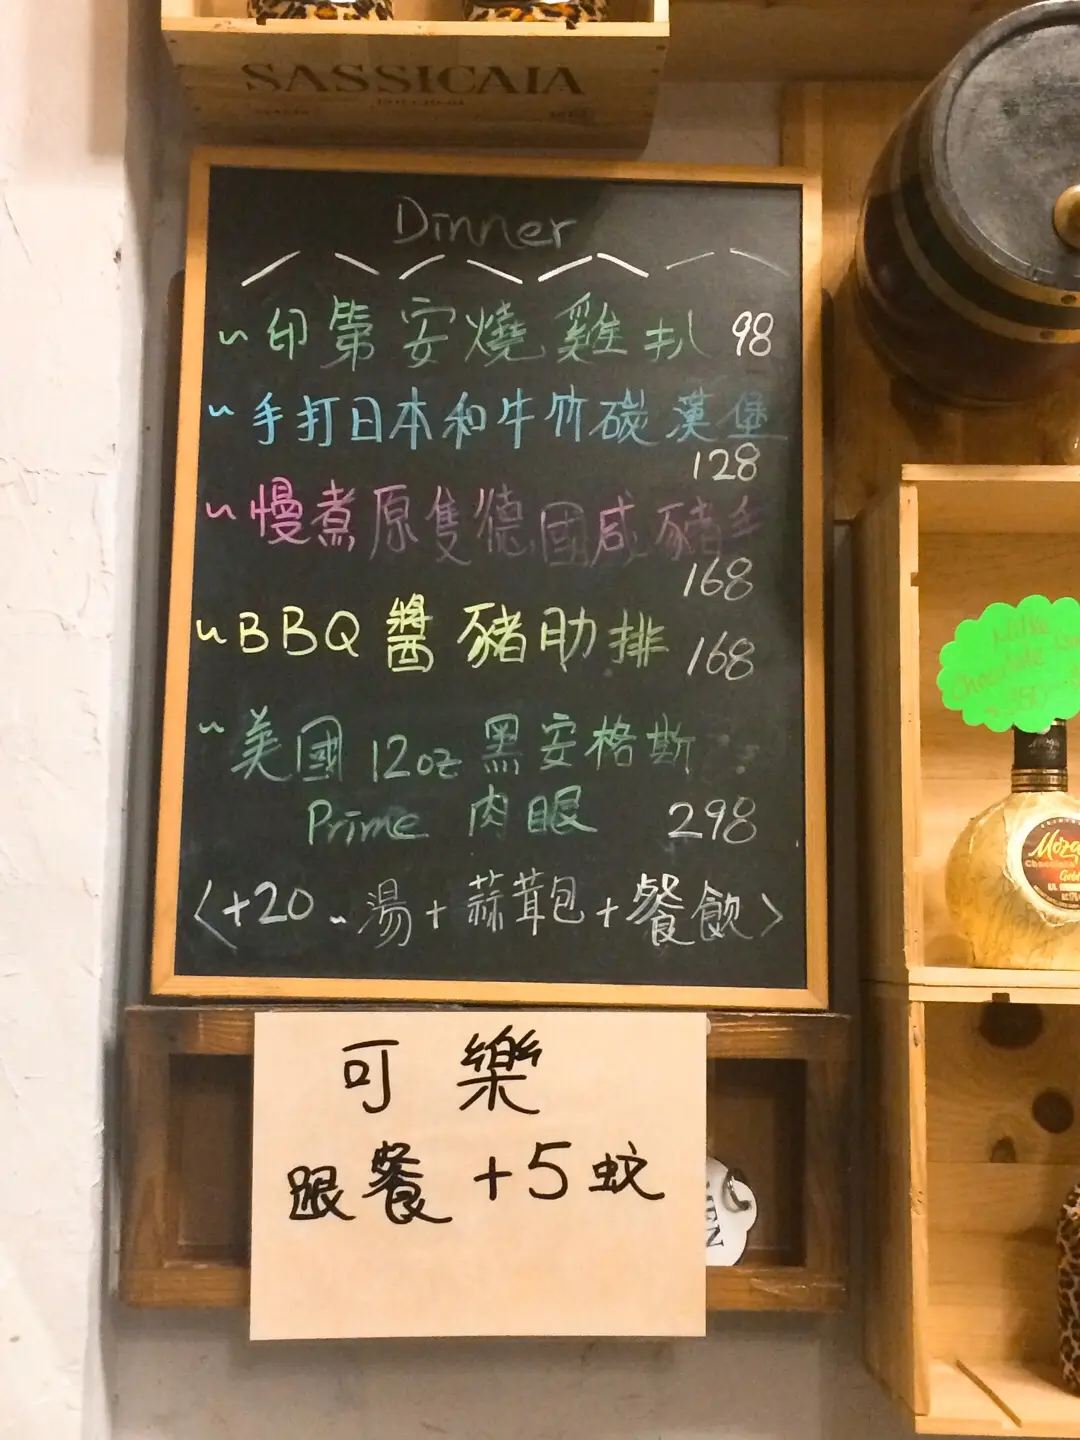 SASSICAIA
Dinner
~印第安燒雞扒 98
~手打日本和牛竹碳漢堡
128
~慢煮原隻德國咸豬手
168
~BBQ醬豬肋排 168
~美國12oz黑安格斯
Prime 肉眼 298
<+20~湯+蒜茸包+餐飲>
可樂
跟餐+5蚊
Milk
Chocolate
Moza
Chocolate
Gold